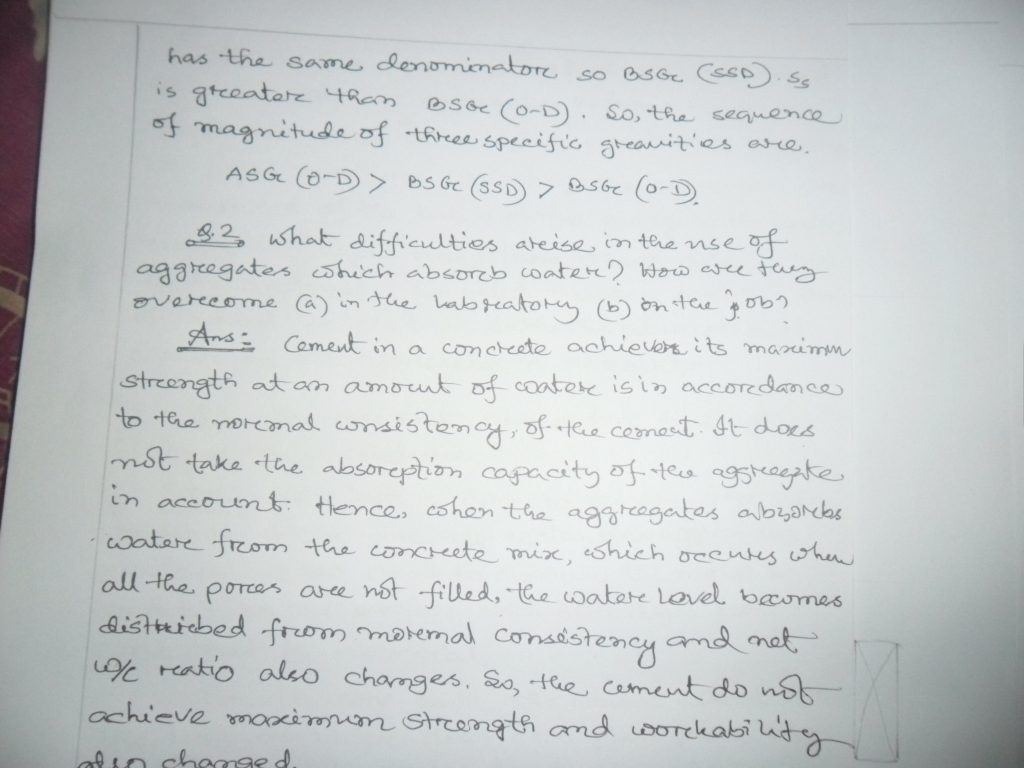 has the same denominator so BSG (SSD). So
is greater than BSG (O-D). So, the sequence
of magnitude of three specific gravities are.
ASG (O-D) > BSG (SSD) > BSG (O-D).
Q.2 What difficulties arise in the use of
aggregates which absorb water? How are they
overcome (a) in the labratory (b) on the job?
Ans: Cement in a concrete achieves its maximum
strength at an amount of water is in accordance
to the normal consistency, of the cement. It does
not take the absorption capacity of the aggregate
in account. Hence, when the aggregates abzorbs
water from the concrete mix, which occures when
all the pores are not filled, the water level becomes
distribed from normal consistency and net
w/c ratio also changes. So, the cement do not
achieve maximum strength and workability
also changed.